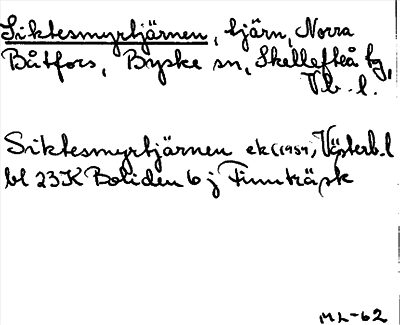 Siktesmyrtjärnen, tjärn, Norra
Båtfors, Byske sn, Skellefteå tg,
Vb. l.
Siktesmyrtjärnen ek (1959), Västerb. l
bl 23K Boliden 6 j Finnträsk
ML-62